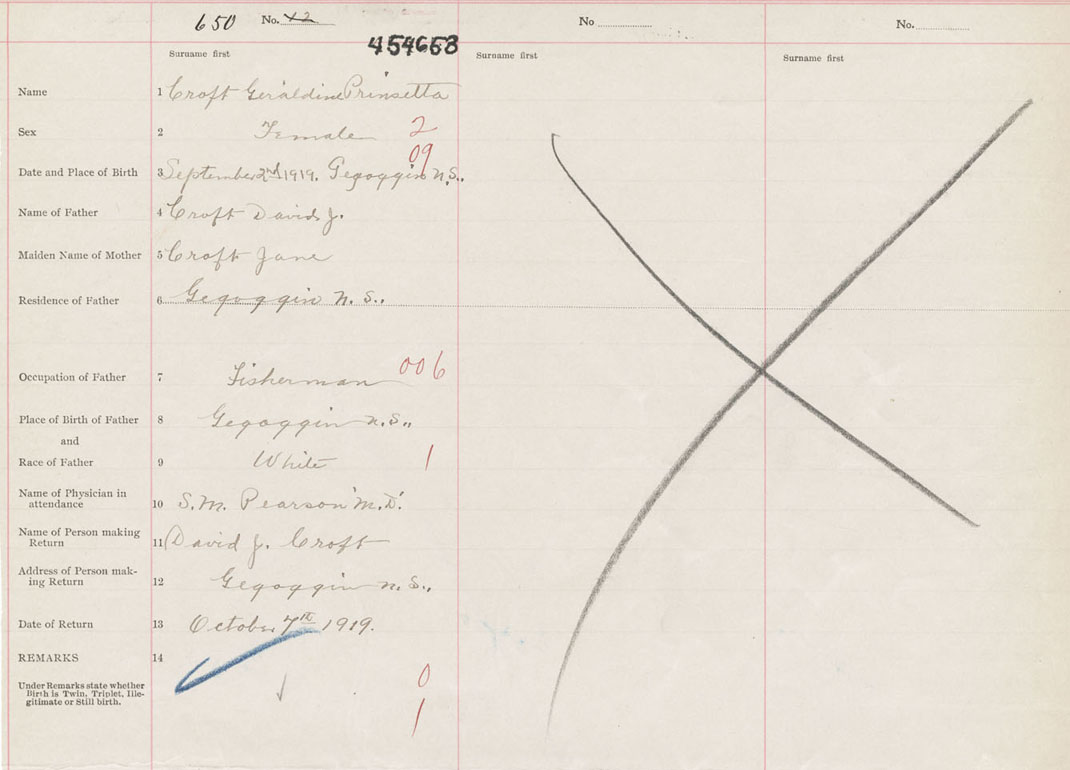 650 No. 12 No No.
454653
Surname first Surname first Surname first
Name 1 Croft Geraldine Prinsetta
Sex 2 Female 2
09
Date and Place of Birth 3 September 2nd 1919. Gegoggin N.S.,
Name of Father 4 Croft David J.
Maiden Name of Mother 5 Croft Jane
Residence of Father 6 Gegoggin N. S.,
Occupation of Father 7 Fisherman 006
Place of Birth of Father 8 Gegoggin N.S.,
and
Race of Father 9 White 1
Name of Physician in
attendance 10 S. M. Pearson M.D.
Name of Person making
Return 11 David J. Croft
Address of Person mak-
ing Return 12 Gegoggin N. S.,
Date of Return 13 October 7th 1919.
REMARKS 14
Under Remarks state whether 0
Birth is Twin, Triplet, Ille-
gitimate or Still birth.
1